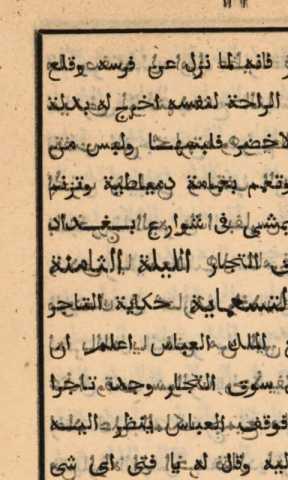 فانه لما نزل عن فرسه وقلع
الراحة لنفسه اخرج له بدلة
فلبسها ولبس من
وتعمم بعمامة دمياطية وتزنر
يمشي في شوارع بغداد
التجار الليلة الثامنة
حكاية التاجر
الملك العباس اعلم ان
سوق التجار وجد تاجرا
فوقف العباس ينظر اليه
وقال له يا فتى اي شي